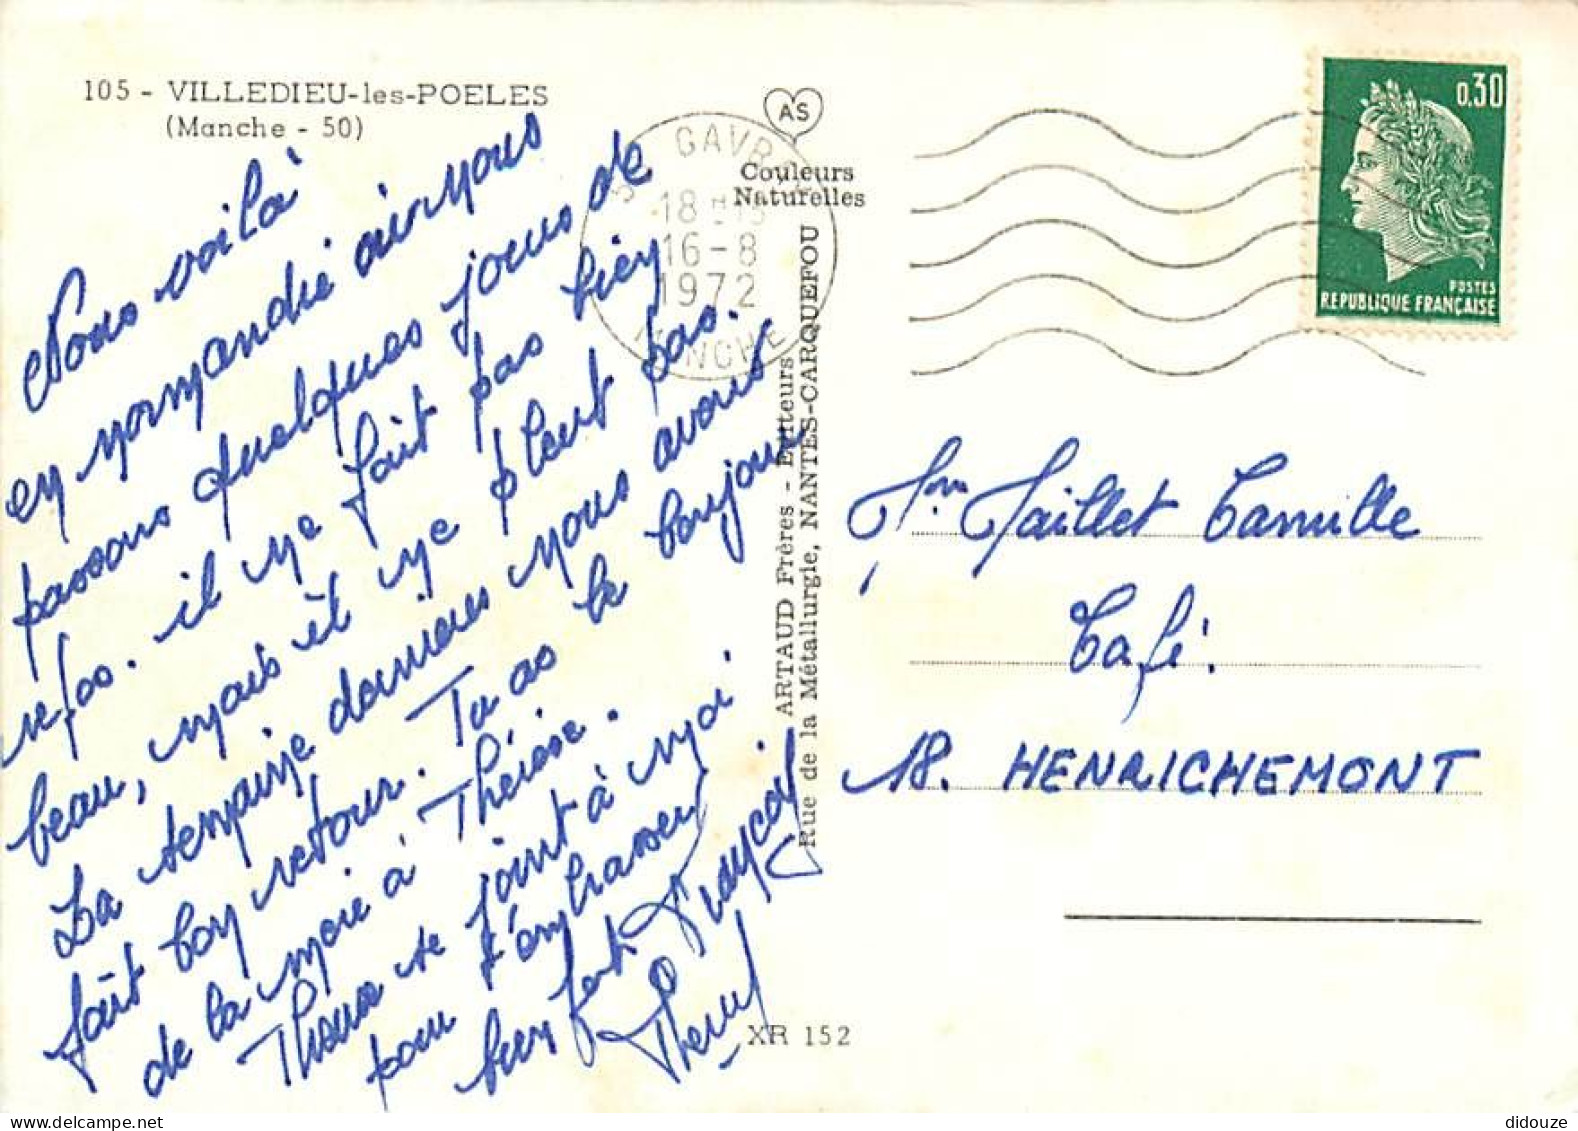 105 - VILLEDIEU-les-POELES
(Manche - 50)
AS
Couleurs
Naturelles
GAVRAY
18 H
16-8
1972
MANCHE
0,30
POSTES
REPUBLIQUE FRANÇAISE
Nous voilà
en normandie ou nous
passons quelques jours de
repos. il ne fait pas bien
beau, mais il ne pleut pas.
La semaine dernière nous avons
fait bon retour. Tu as le bonjour
de la mère à Thérèse.
se joint à moi
pour t'embrasser
bien fort
ARTAUD Frères - Editeurs
Rue de la Métallurgie, NANTES-CARQUEFOU
Maillet Camille
Café.
18. HENRICHEMONT
XR 152
didouze